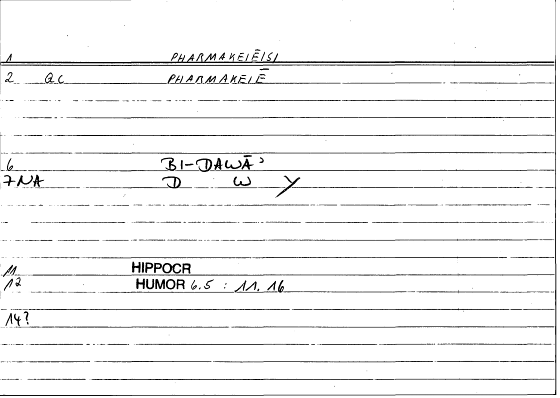 1 PHARMAKEIĒISI
2 GC PHARMAKEIĒ
6 BI-DAWĀʾ
7 NA D W Y
11 HIPPOCR
12 HUMOR 6.5 : 11. 16
14?